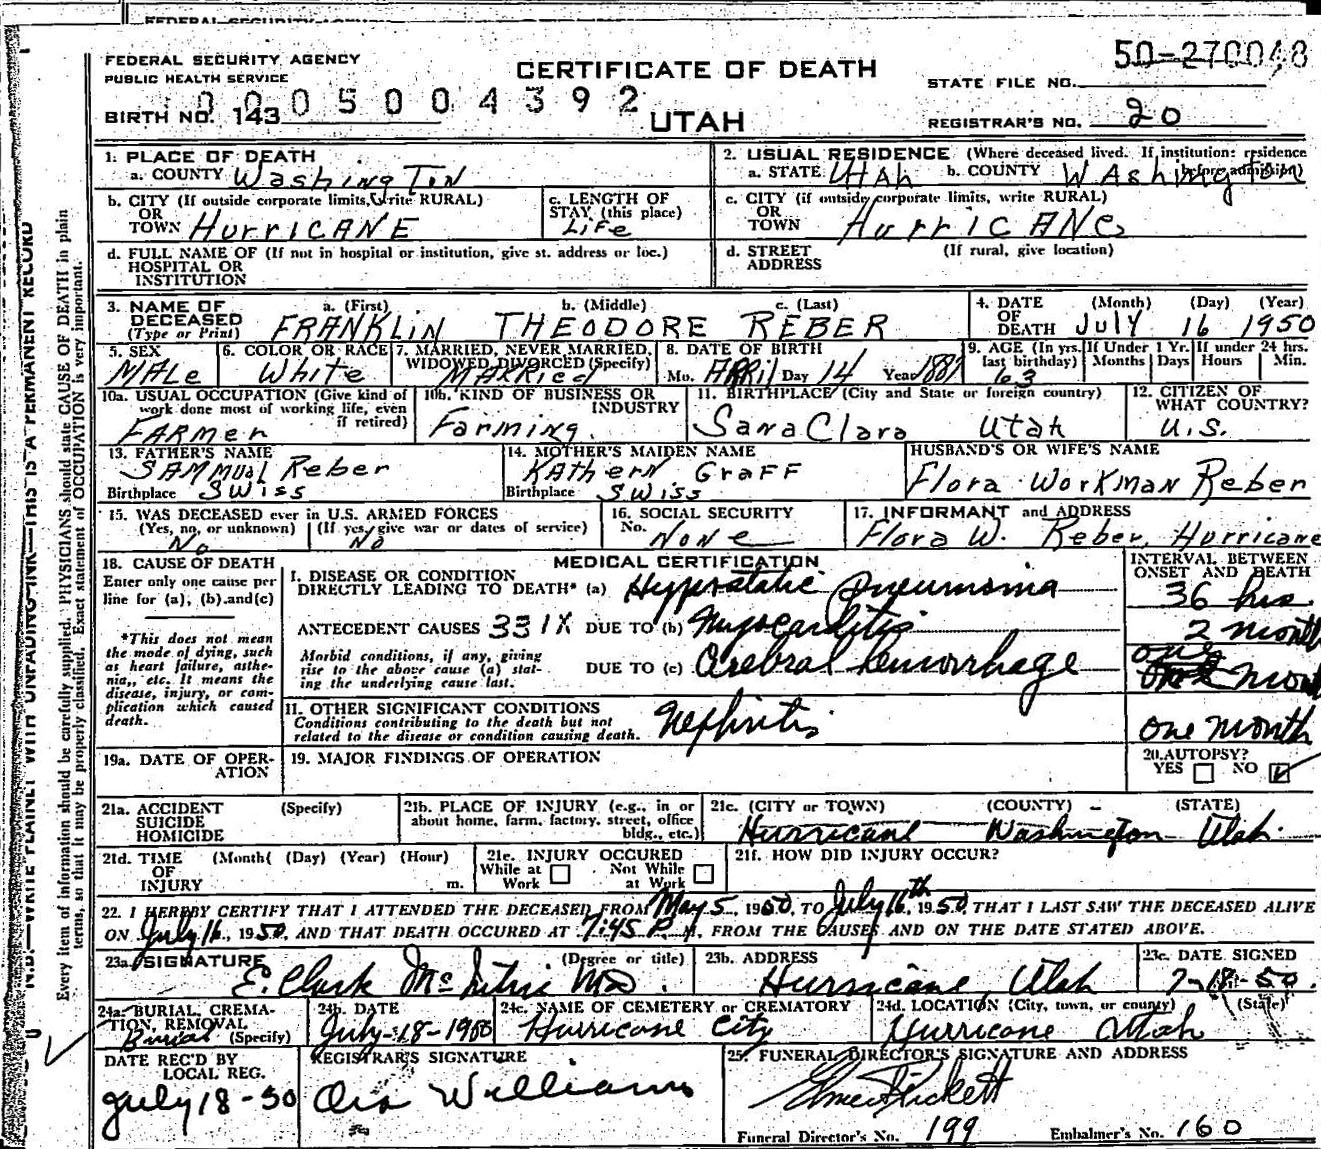 FEDERAL SECURITY AGENCY
PUBLIC HEALTH SERVICE
CERTIFICATE OF DEATH
UTAH
STATE FILE NO. 50-270048
0005004392
BIRTH NO. 143
REGISTRAR'S NO. 20
1. PLACE OF DEATH
a. COUNTY Washington
2. USUAL RESIDENCE (Where deceased lived. If institution: residence before admission)
a. STATE Utah b. COUNTY Washington
b. CITY (If outside corporate limits, write RURAL) OR TOWN Hurricane
c. LENGTH OF STAY (this place) Life
c. CITY (if outside corporate limits, write RURAL) OR TOWN Hurricane
d. FULL NAME OF (If not in hospital or institution, give st. address or loc.) HOSPITAL OR INSTITUTION
d. STREET ADDRESS (If rural, give location)
3. NAME OF DECEASED (Type or Print) a. (First) b. (Middle) c. (Last)
FRANKLIN THEODORE REBER
4. DATE OF DEATH (Month) (Day) (Year)
July 16 1950
5. SEX Male
6. COLOR OR RACE White
7. MARRIED, NEVER MARRIED, WIDOWED, DIVORCED (Specify) Married
8. DATE OF BIRTH Mo. April Day 14 Year 1887
9. AGE (In yrs. last birthday) 63 If Under 1 Yr. Months Days If under 24 hrs. Hours Min.
10a. USUAL OCCUPATION (Give kind of work done most of working life, even if retired) Farmer
10b. KIND OF BUSINESS OR INDUSTRY Farming.
11. BIRTHPLACE (City and State or foreign country) Sana Clara Utah
12. CITIZEN OF WHAT COUNTRY? U.S.
13. FATHER'S NAME Sammual Reber
Birthplace Swiss
14. MOTHER'S MAIDEN NAME Kathern Graff
Birthplace Swiss
HUSBAND'S OR WIFE'S NAME
Flora Workman Reber
15. WAS DECEASED ever in U.S. ARMED FORCES
(Yes, no, or unknown) No (If yes, give war or dates of service) No
16. SOCIAL SECURITY No. None
17. INFORMANT and ADDRESS
Flora W. Reber, Hurricane
18. CAUSE OF DEATH
Enter only one cause per line for (a), (b).and(c)
*This does not mean the mode of dying, such as heart failure, asthenia,, etc. It means the disease, injury, or complication which caused death.
MEDICAL CERTIFICATION
INTERVAL BETWEEN ONSET AND DEATH
I. DISEASE OR CONDITION DIRECTLY LEADING TO DEATH* (a) Hypostatic pneumonia 36 hrs.
ANTECEDENT CAUSES 331X DUE TO (b) Myocarditis 2 month
Morbid conditions, if any, giving rise to the above cause (a) stating the underlying cause last.
DUE TO (c) Cerebral hemorrhage one month
II. OTHER SIGNIFICANT CONDITIONS
Conditions contributing to the death but not related to the disease or condition causing death.
Nephritis one month
19a. DATE OF OPERATION
19. MAJOR FINDINGS OF OPERATION
20. AUTOPSY?
YES NO
21a. ACCIDENT SUICIDE HOMICIDE (Specify)
21b. PLACE OF INJURY (e.g., in or about home, farm, factory, street, office bldg., etc.)
21c. (CITY or TOWN) (COUNTY) (STATE)
Hurricane Washington Utah.
21d. TIME OF INJURY (Month( (Day) (Year) (Hour) m.
21e. INJURY OCCURED While at Work Not While at Work
21f. HOW DID INJURY OCCUR?
22. I HEREBY CERTIFY THAT I ATTENDED THE DECEASED FROM May 5, 1950, TO July 16th, 1950, THAT I LAST SAW THE DECEASED ALIVE
ON July 16, 1950, AND THAT DEATH OCCURED AT 7:45 P.M., FROM THE CAUSES AND ON THE DATE STATED ABOVE.
23a. SIGNATURE (Degree or title)
E. Clark MD.
23b. ADDRESS Hurricane, Utah
23c. DATE SIGNED 7-18-50.
24a. BURIAL, CREMATION, REMOVAL (Specify) Burial
24b. DATE July-18-1950
24c. NAME OF CEMETERY or CREMATORY Hurricane City
24d. LOCATION (City, town, or county) (State)
Hurricane Utah
DATE REC'D BY LOCAL REG. July 18-50
REGISTRAR'S SIGNATURE
Williams
25. FUNERAL DIRECTOR'S SIGNATURE AND ADDRESS
Pickett
Funeral Director's No. 199 Embalmer's No. 160
N.B.—WRITE PLAINLY WITH UNFADING INK—THIS IS A PERMANENT RECORD
Every item of information should be carefully supplied. PHYSICIANS should state CAUSE OF DEATH in plain
terms, so that it may be properly classified. Exact statement of OCCUPATION is very important.